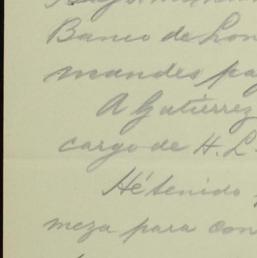 Banco de Lon
mandes pa
A Gutierrez
cargo de H. L.
He tenido
meza para con